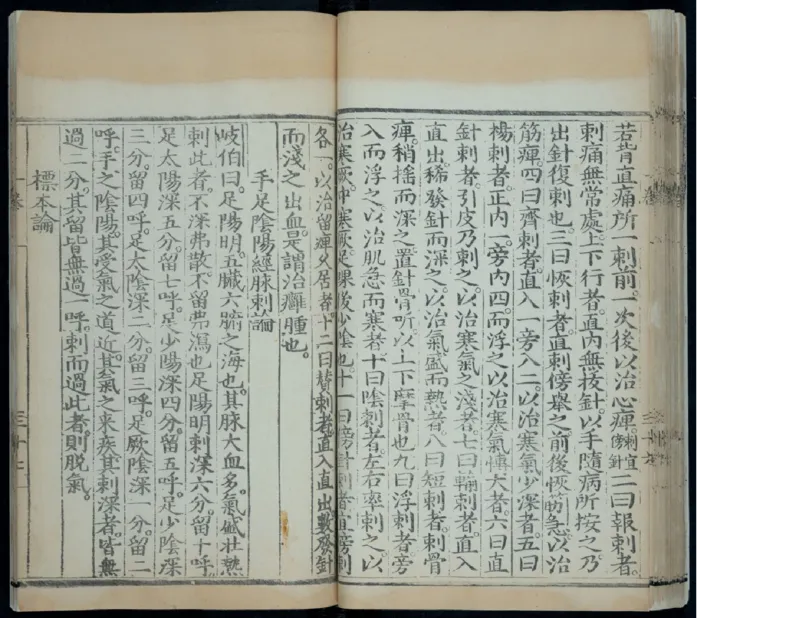 若背直痛所一刺前一次後以治心痺刺宜傍針二曰報刺者
刺痛無常處上下行者直内無拔針以手隨病所按之乃
出針復刺也三曰恢刺者直刺傍舉之前後恢筋急以治
筋痺四曰齊刺者直入一旁入二以治寒氣少深者五曰
楊刺者正内一旁内四而浮之以治寒氣慱大者六曰直
針刺者引皮乃刺之以治寒氣之淺者七曰輸刺者直入
直出稀發針而深之以治氣盛而熱者八曰短刺者刺骨
痺稍揺而深之置針骨所以上下摩骨也九曰浮刺者旁
入而浮之以治肌急而寒者十曰陰刺者左右率刺之以
治寒厥中寒厥足踝後少陰也十一曰傍針刺者直旁刺
各一以治留痺久居者十二曰賛刺者直入直出數發針
而淺之出血是謂治癰腫也
手足陰陽經脉刺論
岐伯曰足陽明五臟六腑之海也其脉大血多氣盛壯熱
刺此者不深弗散不留弗瀉也足陽明刺深六分留十呼
足太陽深五分留七呼足少陽深四分留五呼足少陰深
三分留四呼足太陰深二分留三呼足厥陰深一分留二
呼手之陰陽其受氣之道近其氣之來疾其刺深者皆無
過二分其留皆無過一呼刺而過此者則脱氣
標本論